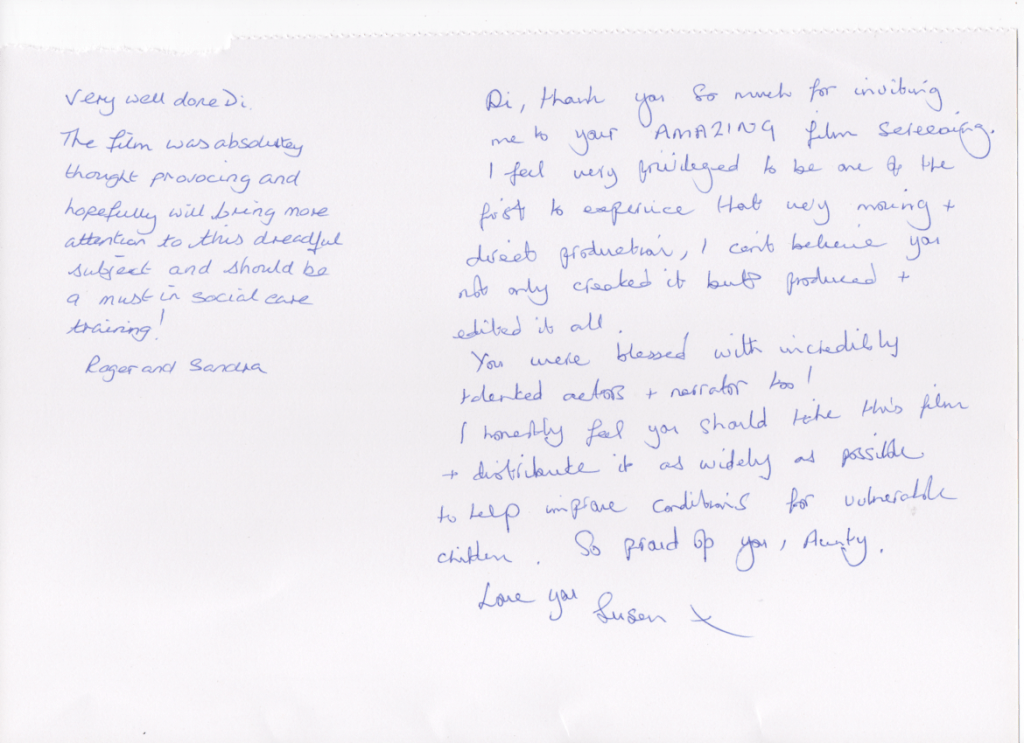 Very well done Di.
The film was absolutey
thought provocing and
hopefully will bring more
attention to this dreadful
subject and should be
a must in social care
training!
Roger and Sandra
Di, thank you so much for inviting
me to your AMAZING film screening.
I feel very privileged to be one of the
first to experince that very moving +
direct production, I can't believe you
not only created it but produced +
edited it all.
You were blessed with incredibly
talented actors + narrator too!
I honestly feel you should take this film
+ distribute it as widely as possible
to help improve conditions for vulnerable
children. So proud of you, Aunty.
Love you
Susan x